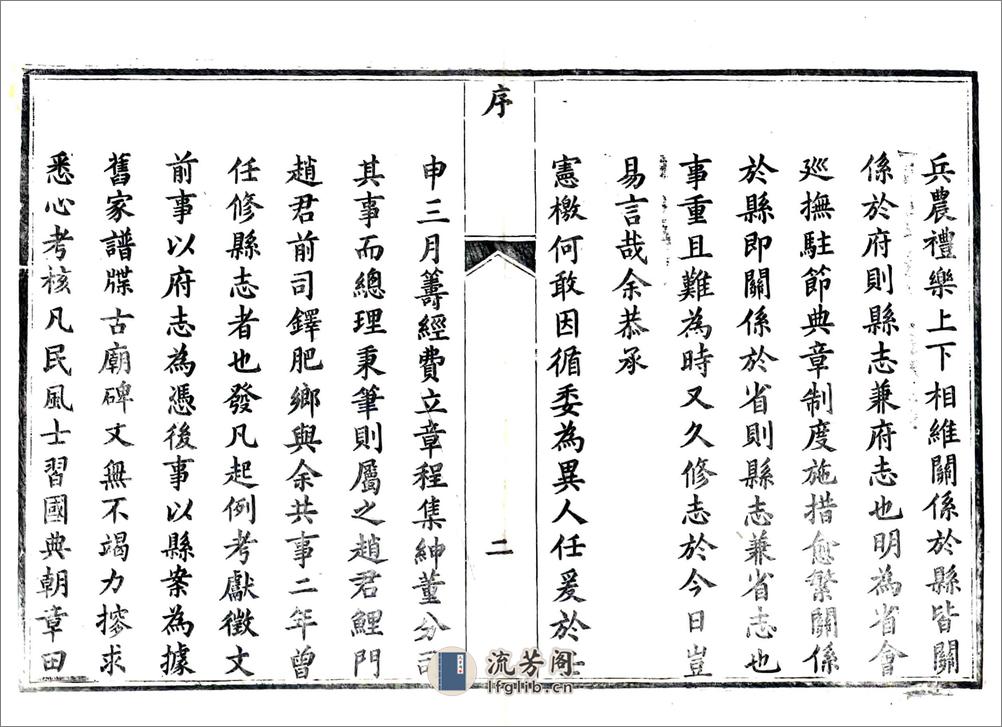 兵農禮樂上下相維關係於縣皆關
係於府則縣志兼府志也明為省會
廵撫駐節典章制度施措愈繁關係
於縣即關係於省則縣志兼省志也
事重且難為時又久修志於今日豈
易言哉余恭承
憲檄何敢因循委為異人任爰於
序
二
申三月籌經費立章程集紳董分司
其事而總理秉筆則屬之趙君鯉門
趙君前司鐸肥鄉與余共事二年曾
任修縣志者也發凡起例考獻徵文
前事以府志為憑後事以縣案為據
舊家譜牒古廟碑文無不竭力搜求
悉心考核凡民風士習國典朝章田
流芳阁
lfglib.cn